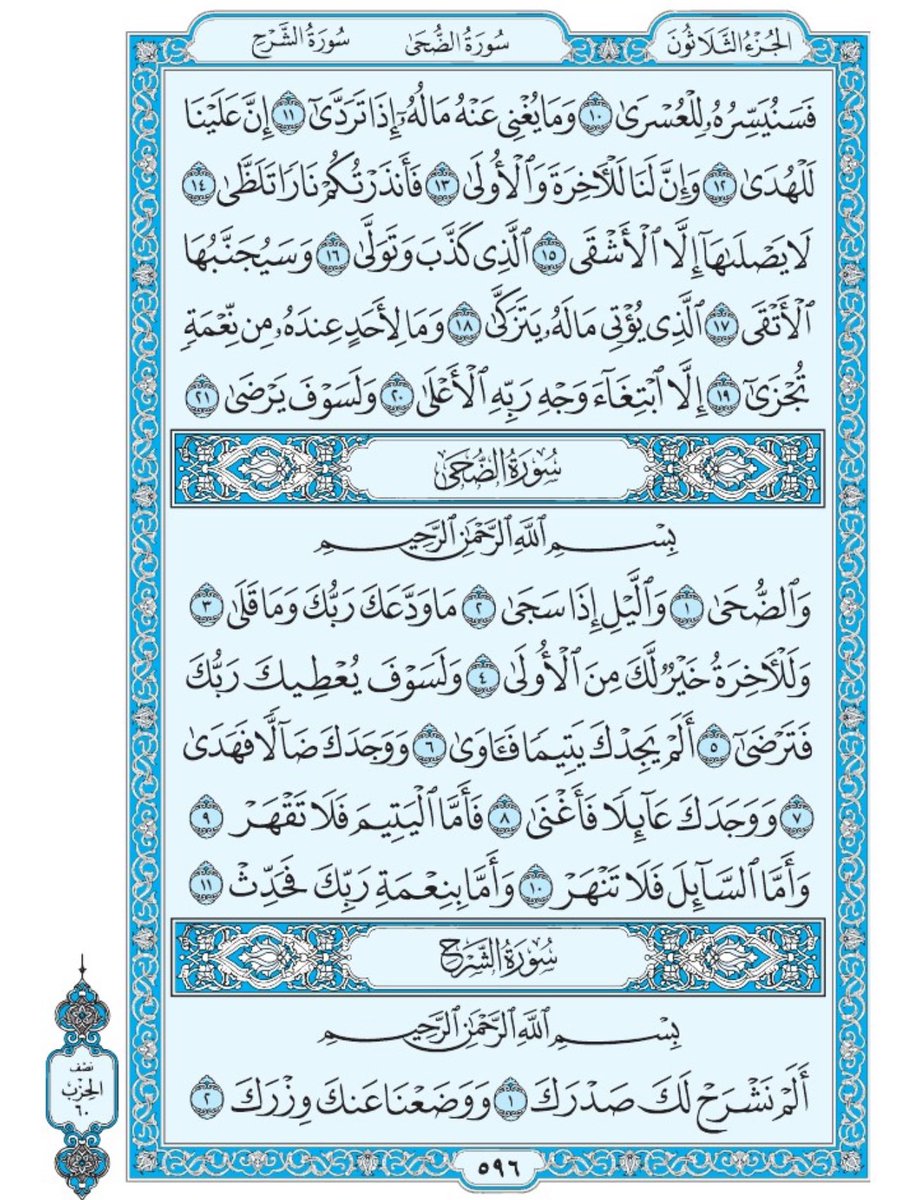 الجُزْءُ الثَّلَاثُونَ
سُورَةُ الضُّحَى
سُورَةُ الشَّرْحِ
فَسَنُيَسِّرُهُۥ لِلْعُسْرَىٰ ١٠ وَمَا يُغْنِى عَنْهُ مَالُهُۥٓ إِذَا تَرَدَّىٰٓ ١١ إِنَّ عَلَيْنَا
لَلْهُدَىٰ ١٢ وَإِنَّ لَنَا لَلْـَٔاخِرَةَ وَٱلْأُولَىٰ ١٣ فَأَنذَرْتُكُمْ نَارًا تَلَظَّىٰ ١٤
لَا يَصْلَىٰهَآ إِلَّا ٱلْأَشْقَى ١٥ ٱلَّذِى كَذَّبَ وَتَوَلَّىٰ ١٦ وَسَيُجَنَّبُهَا
ٱلْأَتْقَى ١٧ ٱلَّذِى يُؤْتِى مَالَهُۥ يَتَزَكَّىٰ ١٨ وَمَا لِأَحَدٍ عِندَهُۥ مِن نِّعْمَةٍ
تُجْزَىٰٓ ١٩ إِلَّا ٱبْتِغَآءَ وَجْهِ رَبِّهِ ٱلْأَعْلَىٰ ٢٠ وَلَسَوْفَ يَرْضَىٰ ٢١
سُورَةُ الضُّحَى
بِسْمِ ٱللَّهِ ٱلرَّحْمَٰنِ ٱلرَّحِيمِ
وَٱلضُّحَىٰ ١ وَٱلَّيْلِ إِذَا سَجَىٰ ٢ مَا وَدَّعَكَ رَبُّكَ وَمَا قَلَىٰ ٣
وَلَلْـَٔاخِرَةُ خَيْرٌ لَّكَ مِنَ ٱلْأُولَىٰ ٤ وَلَسَوْفَ يُعْطِيكَ رَبُّكَ
فَتَرْضَىٰٓ ٥ أَلَمْ يَجِدْكَ يَتِيمًا فَـَٔاوَىٰ ٦ وَوَجَدَكَ ضَآلًّا فَهَدَىٰ
٧ وَوَجَدَكَ عَآئِلًا فَأَغْنَىٰ ٨ فَأَمَّا ٱلْيَتِيمَ فَلَا تَقْهَرْ ٩
وَأَمَّا ٱلسَّآئِلَ فَلَا تَنْهَرْ ١٠ وَأَمَّا بِنِعْمَةِ رَبِّكَ فَحَدِّثْ ١١
سُورَةُ الشَّرْحِ
بِسْمِ ٱللَّهِ ٱلرَّحْمَٰنِ ٱلرَّحِيمِ
أَلَمْ نَشْرَحْ لَكَ صَدْرَكَ ١ وَوَضَعْنَا عَنكَ وِزْرَكَ ٢
نصْف
الحِزْبْ
٦٠
٥٩٦